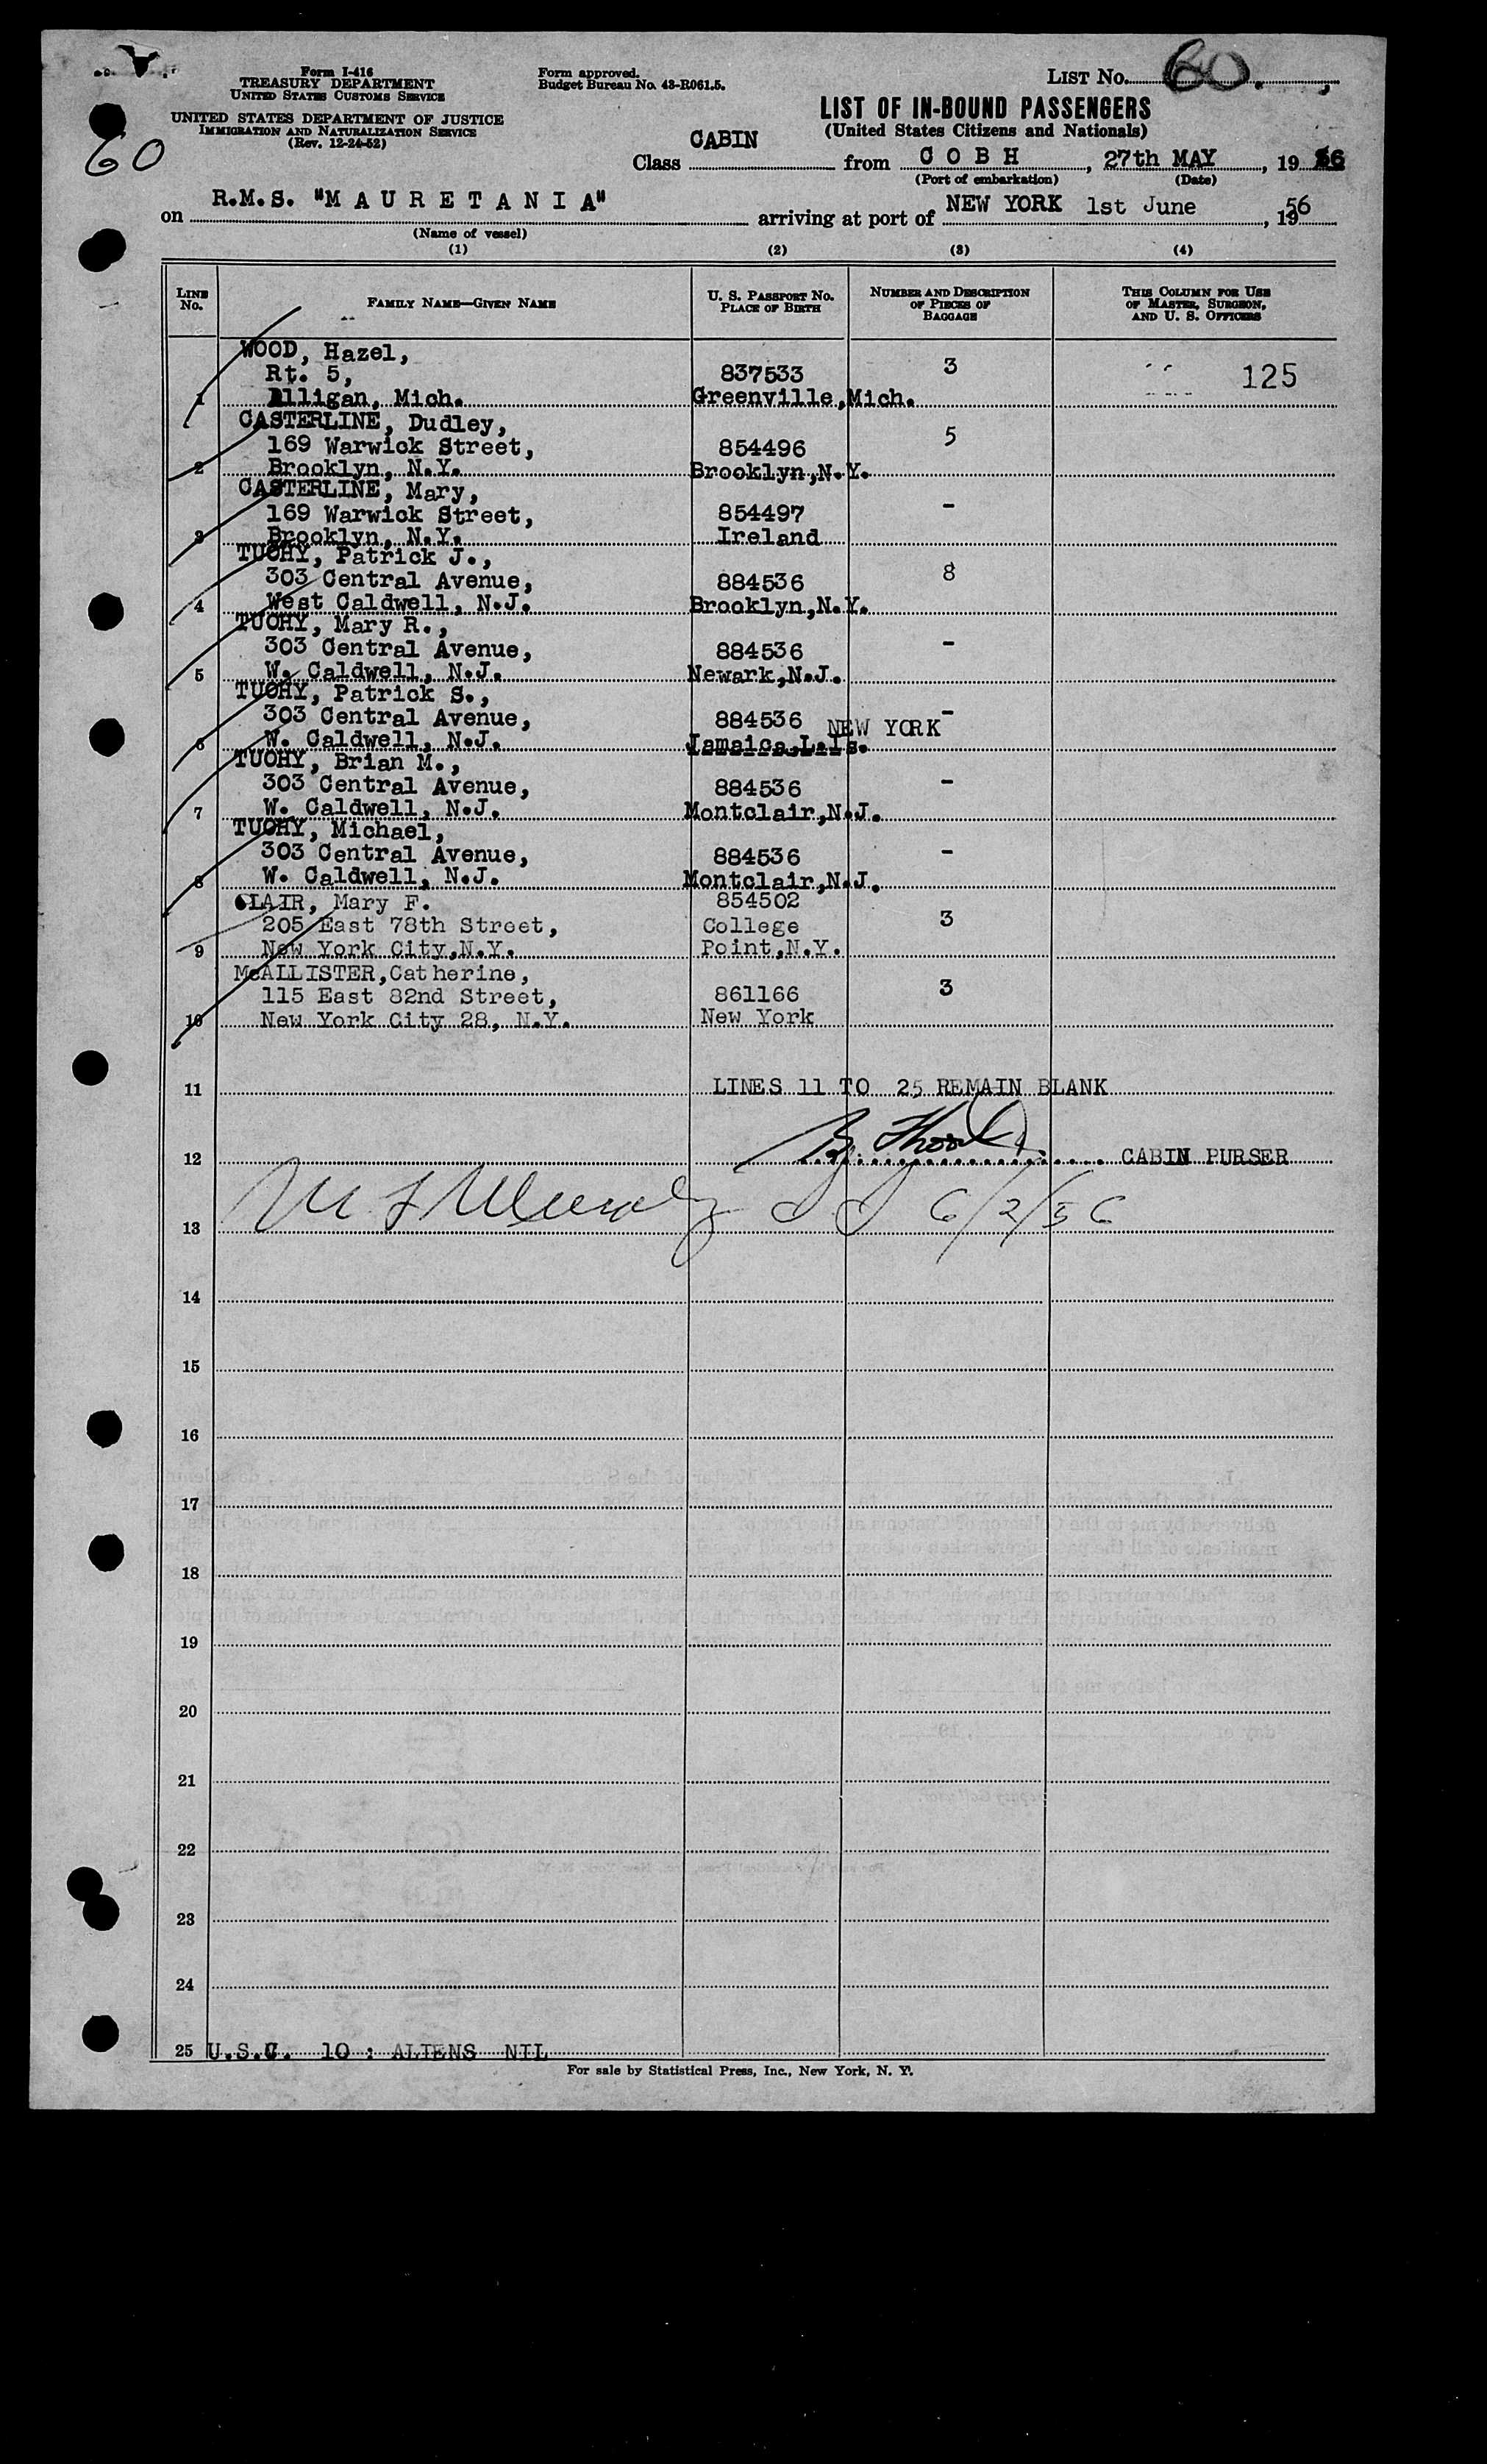 LIST No. 60.
60
Form I-416
TREASURY DEPARTMENT
UNITED STATES CUSTOMS SERVICE
Form approved.
Budget Bureau No. 43-R061.5.
UNITED STATES DEPARTMENT OF JUSTICE
IMMIGRATION AND NATURALIZATION SERVICE
(Rev. 12-24-52)
LIST OF IN-BOUND PASSENGERS
(United States Citizens and Nationals)
Class CABIN from C O B H, 27th MAY, 19 56
(Port of embarkation) (Date)
on R.M.S. "M A U R E T A N I A" arriving at port of NEW YORK 1st June, 1956
(Name of vessel)
(1) (2) (3) (4)
LINE No. FAMILY NAME—GIVEN NAME U. S. PASSPORT No. PLACE OF BIRTH NUMBER AND DESCRIPTION OF PIECES OF BAGGAGE THIS COLUMN FOR USE OF MASTER, SURGEON, AND U. S. OFFICERS
WOOD, Hazel, 3
Rt. 5, 837533 125
1 Alligan, Mich. Greenville,Mich.
CASTERLINE, Dudley, 5
169 Warwick Street, 854496
2 Brooklyn, N.Y. Brooklyn,N.Y.
CASTERLINE, Mary, -
169 Warwick Street, 854497
3 Brooklyn, N.Y. Ireland
TUOHY, Patrick J., 8
303 Central Avenue, 884536
4 West Caldwell, N.J. Brooklyn,N.Y.
TUOHY, Mary R., -
303 Central Avenue, 884536
5 W. Caldwell, N.J. Newark,N.J.
TUOHY, Patrick S., -
303 Central Avenue, 884536 NEW YORK
6 W. Caldwell, N.J. Jamaica,L.Is.
TUOHY, Brian M., -
303 Central Avenue, 884536
7 W. Caldwell, N.J. Montclair,N.J.
TUOHY, Michael, -
303 Central Avenue, 884536
8 W. Caldwell, N.J. Montclair,N.J.
CLAIR, Mary F. 854502
205 East 78th Street, College 3
9 New York City,N.Y. Point,N.Y.
McALLISTER,Catherine,
115 East 82nd Street, 861166 3
10 New York City 28, N.Y. New York
11 LINES 11 TO 25 REMAIN BLANK
12 CABIN PURSER
13 6/2/56
14
15
16
17
18
19
20
21
22
23
24
25 U.S.C. 10 : ALIENS NIL
For sale by Statistical Press, Inc., New York, N. Y.